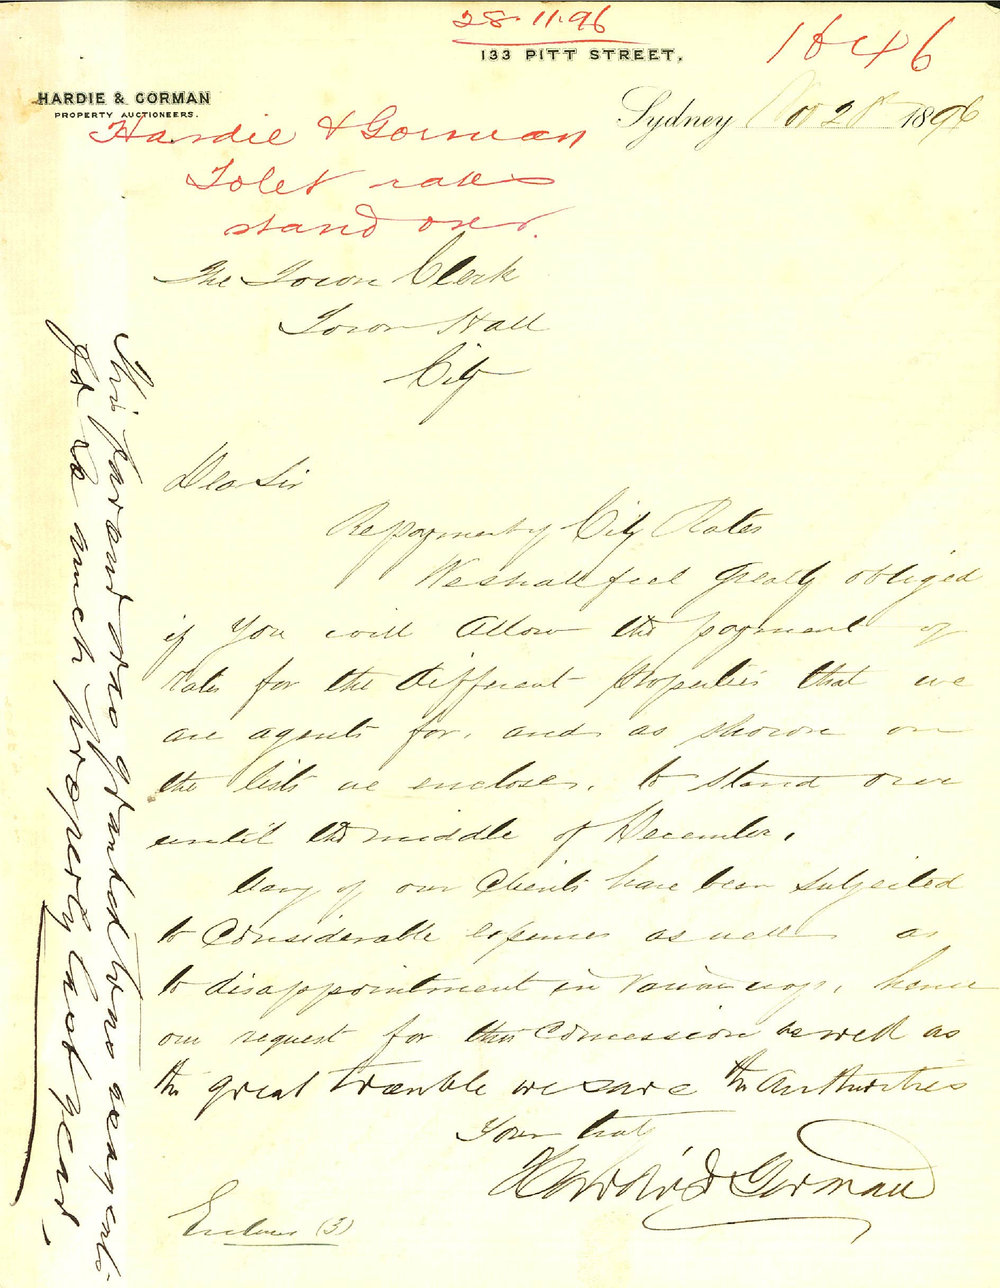 28.11.96
1846
133 PITT STREET.
HARDIE & GORMAN
PROPERTY AUCTIONEERS.
Sydney Nov 28 1896
Hardie & Gorman
To let rates
stand over.
The Town Clerk
Town Hall
City
Dear Sir
Re payment of City Rates
We shall feel greatly obliged
if you will allow the payment of
rates for the different properties that we
are agents for, and as shown on
the lists we enclose, to stand over
until the middle of December.
Many of our Clients have been subjected
to considerable expenses as well as
to disappointment in various ways, hence
our request for this Concession as well as
the great trouble we save the Authorities
Yours truly
Hardie & Gorman
Enclosures (3)
This favour was granted two years
for as much property last year.